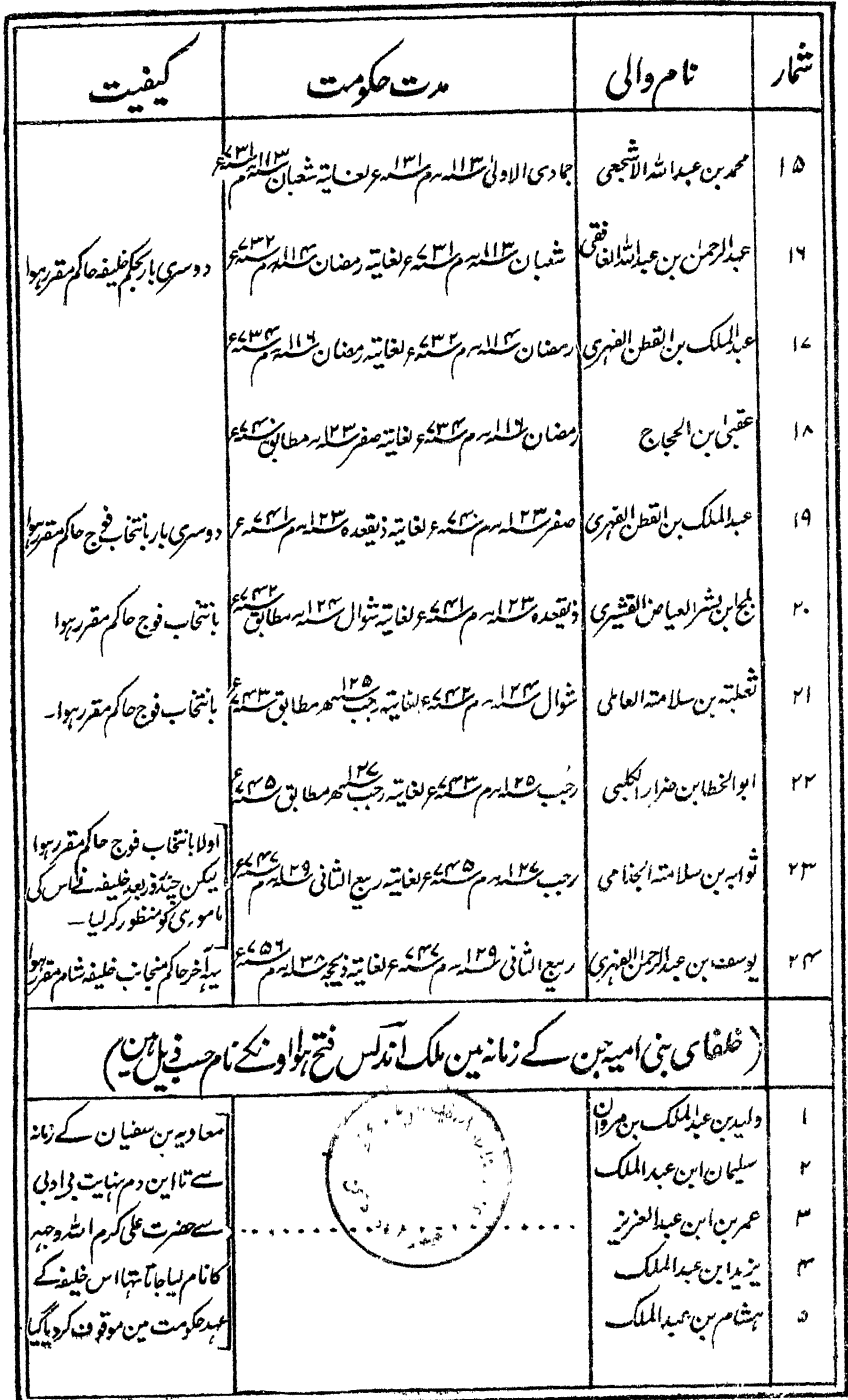 شمار نام والی مدت حکومت کیفیت
۱۵ محمد بن عبداللہ الاشجعی جمادی الاولیٰ ۱۱۳؁ھ م ۱۳۱؁ء لغایتہ شعبان ۱۱۳؁ھ م ۷۳۱؁ء
۱۶ عبدالرحمٰن بن عبداللہ الغافقی شعبان ۱۱۳؁ھ م ۷۳۱؁ء لغایتہ رمضان ۱۱۴؁ھ م ۷۳۲؁ء دوسری بار بحکم خلیفہ حاکم مقرر ہوا
۱۷ عبدالملک بن القطن الفہری رمضان ۱۱۴؁ھ م ۷۳۲؁ء لغایتہ رمضان ۱۱۶؁ھ م ۷۳۴؁ء
۱۸ عقبیٰ بن الحجاج رمضان ۱۱۶؁ھ م ۷۳۴؁ء لغایتہ صفر ۱۲۳؁ھ مطابق ۷۴۰؁ء
۱۹ عبدالملک بن القطن الفہری صفر ۱۲۳؁ھ م ۷۴۰؁ء لغایتہ ذیقعدہ ۱۲۳؁ھ م ۷۴۱؁ء دوسری بار بانتخاب فوج حاکم مقرر ہوا
۲۰ بلج ابن بشر العیاض القشیری ذیقعدہ ۱۲۳؁ھ م ۷۴۱؁ء لغایتہ شوال ۱۲۴؁ھ مطابق ۷۴۲؁ء بانتخاب فوج حاکم مقرر ہوا
۲۱ ثعلبتہ بن سلامتہ العاملی شوال ۱۲۴؁ھ م ۷۴۲؁ء لغایتہ رجب ۱۲۵؁ھ مطابق ۷۴۳؁ء بانتخاب فوج حاکم مقرر ہوا۔
۲۲ ابوالخطا بن ضرار الکلبی رجب ۱۲۵؁ھ م ۷۴۳؁ء لغایتہ رجب ۱۲۷؁ھ مطابق ۷۴۵؁ء
۲۳ ثوابہ بن سلامتہ الجذامی رجب ۱۲۷؁ھ م ۷۴۵؁ء لغایتہ ربیع الثانی ۱۲۹؁ھ م ۷۴۷؁ء اولا بانتخاب فوج حاکم مقرر ہوا
لیکن چند روز بعد خلیفہ نے اس کی
ماموری کو منظور کر لیا۔
۲۴ یوسف بن عبدالرحمن الفہری ربیع الثانی ۱۲۹؁ھ م ۷۴۷؁ء لغایتہ ذیحجہ ۱۳۸؁ھ م ۷۵۶؁ء یہ آخر حاکم منجانب خلیفہ شام مقرر ہوا
(خلفای بنی امیہ جن کے زمانہ مین ملک اندلس فتح ہوا اونکے نام حسب ذیل ہین)
۱ ولید بن عبدالملک بن مروان معاویہ بن سفیان کے زمانہ
۲ سلیمان ابن عبدالملک سے تا این دم نہایت بی ادبی
۳ عمر بن ابن عبدالعزیز .......... سے حضرت علی کرم اللہ وجہہ
۴ یزید ابن عبدالملک کا نام لیا جاتا تہا اس خلیفہ کے
۵ ہشام بن عبدالملک عہد حکومت مین موقوف کر دیا گیا